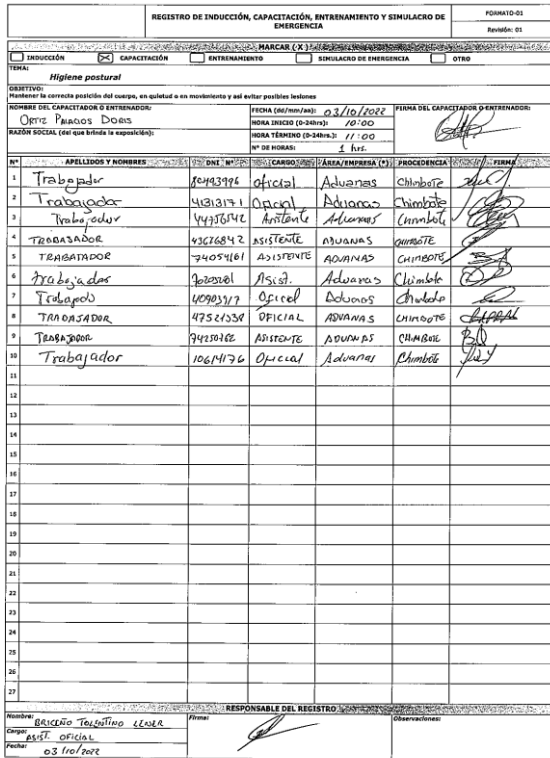 REGISTRO DE INDUCCIÓN, CAPACITACIÓN, ENTRENAMIENTO Y SIMULACRO DE EMERGENCIA
FORMATO-01
Revisión: 01
MARCAR (X)
INDUCCIÓN CAPACITACIÓN ENTRENAMIENTO SIMULACRO DE EMERGENCIA OTRO
TEMA:
Higiene postural
OBJETIVO:
Mantener la correcta posición del cuerpo, en quietud o en movimiento y así evitar posibles lesiones
NOMBRE DEL CAPACITADOR O ENTRENADOR:
ORTIZ DORIS
RAZÓN SOCIAL (del que brinda la exposición):
FECHA (dd/mm/aa): 03/10/2022
HORA INICIO (0-24hrs): 10:00
HORA TÉRMINO (0-24hrs.): 11:00
N° DE HORAS: 1 hrs.
FIRMA DEL CAPACITADOR O ENTRENADOR:
N° APELLIDOS Y NOMBRES DNI N° CARGO ÁREA/EMPRESA (*) PROCEDENCIA FIRMA
1 Trabajador oficial Aduanas Chimbote
2 Trabajador 41313171 Oficial Aduanas Chimbote
3 Trabajador Asistente Aduanas Chimbote
4 TRABAJADOR ASISTENTE ADUANAS CHIMBOTE
5 TRABAJADOR ASISTENTE ADUANAS CHIMBOTE
6 Trabajador Asist. Aduanas Chimbote
7 Oficial Aduanas Chimbote
8 TRABAJADOR OFICIAL ADUANAS CHIMBOTE
9 TRABAJADOR 74250762 ASISTENTE ADUANAS CHIMBOTE
10 Trabajador 10614176 Oficial Aduanas Chimbote
11
12
13
14
15
16
17
18
19
20
21
22
23
24
25
26
27
RESPONSABLE DEL REGISTRO
Nombre: BRICEÑO TOLENTINO LENER
Firma:
Observaciones:
Cargo: ASIST. OFICIAL
Fecha: 03/10/2022